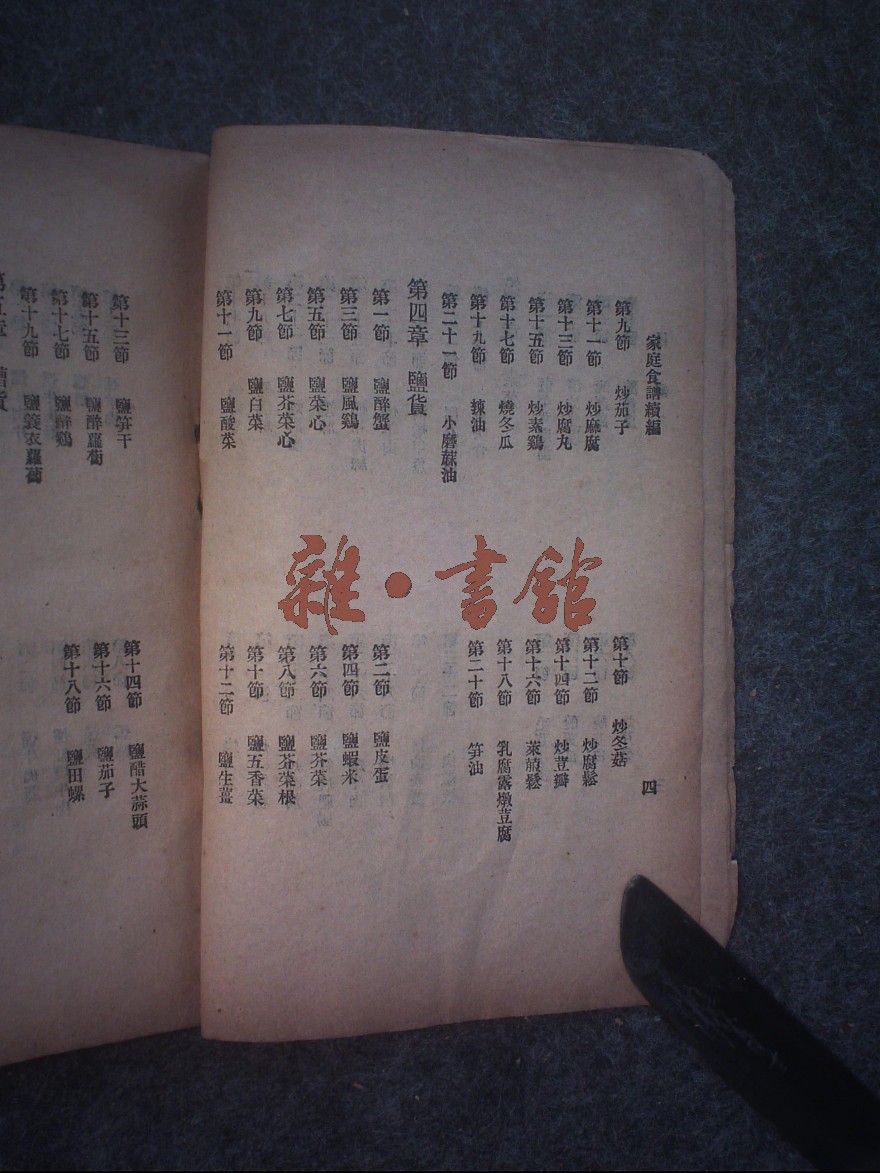 家庭食譜續編
四
第九節 炒茄子
第十節 炒冬菇
第十一節 炒麻腐
第十二節 炒腐鬆
第十三節 炒腐丸
第十四節 炒荳瓣
第十五節 炒素鷄
第十六節 萊菔鬆
第十七節 燒冬瓜
第十八節 乳腐露燉荳腐
第十九節 辣油
第二十節 笋油
第二十一節 小磨蔴油
第四章 鹽貨
第一節 鹽醉蟹
第二節 鹽皮蛋
第三節 鹽風鷄
第四節 鹽蝦米
第五節 鹽菜心
第六節 鹽芥菜
第七節 鹽芥菜心
第八節 鹽芥菜根
第九節 鹽白菜
第十節 鹽五香菜
第十一節 鹽酸菜
第十二節 鹽生薑
第十三節 鹽笋干
第十四節 鹽醋大蒜頭
第十五節 鹽醉蘿蔔
第十六節 鹽茄子
第十七節 鹽醉鷄
第十八節 鹽田螺
第十九節 鹽蓑衣蘿蔔
第五章 糟貨
雜·書館